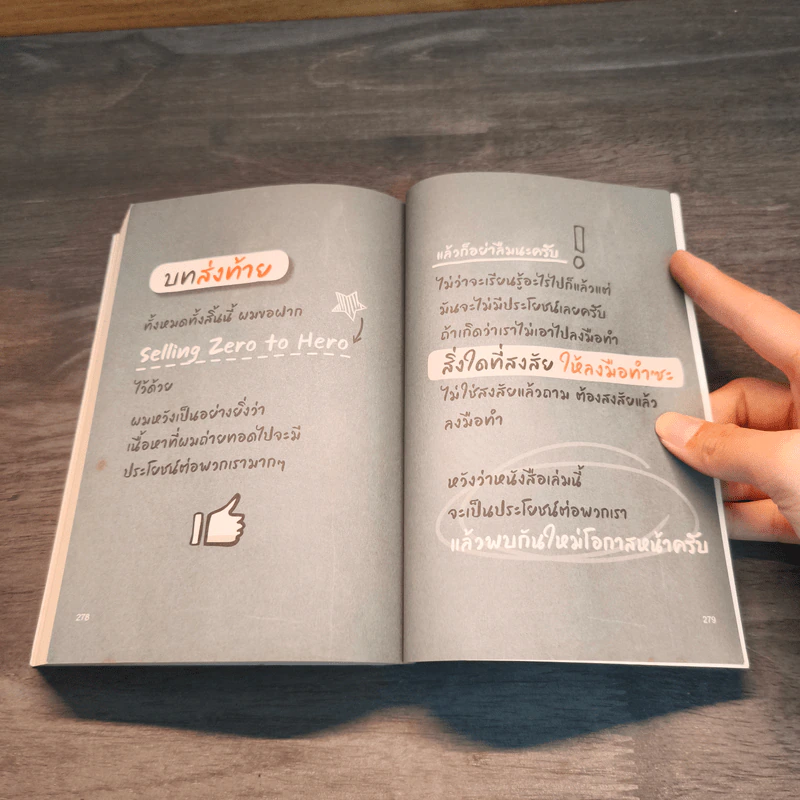 บทส่งท้าย
ทั้งหมดทั้งสิ้นนี้ ผมขอฝาก
Selling Zero to Hero
ไว้ด้วย
ผมหวังเป็นอย่างยิ่งว่า
เนื้อหาที่ผมถ่ายทอดไปจะมี
ประโยชน์ต่อพวกเรามากๆ
278
แล้วก็อย่าลืมนะครับ !
ไม่ว่าจะเรียนรู้อะไรไปก็แล้วแต่
มันจะไม่มีประโยชน์เลยครับ
ถ้าเกิดว่าเราไม่เอาไปลงมือทำ
สิ่งใดที่สงสัย ให้ลงมือทำซะ
ไม่ใช่สงสัยแล้วถาม ต้องสงสัยแล้ว
ลงมือทำ
หวังว่าหนังสือเล่มนี้
จะเป็นประโยชน์ต่อพวกเรา
แล้วพบกันใหม่โอกาสหน้าครับ
279